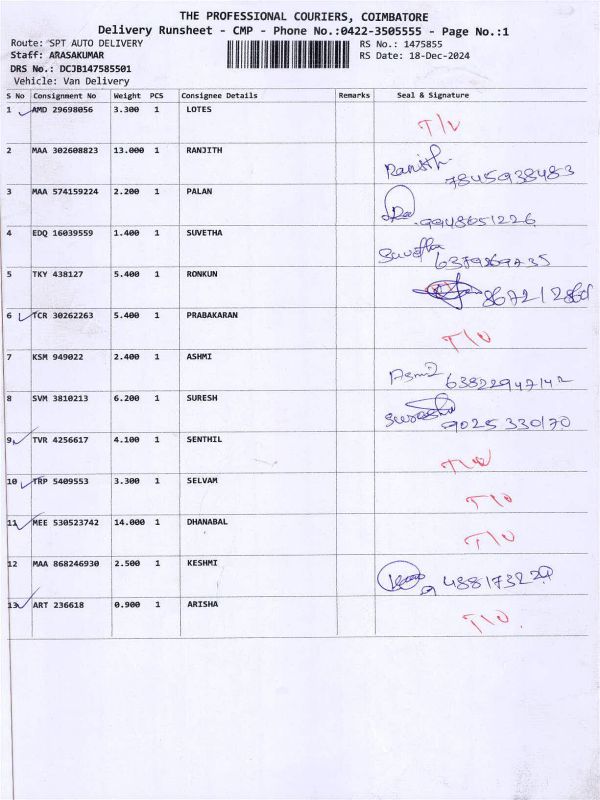 THE PROFESSIONAL COURIERS, COIMBATORE
Delivery Runsheet - CMP - Phone No.:0422-3505555 - Page No.:1
Route: SPT AUTO DELIVERY RS No.: 1475855
Staff: ARASAKUMAR RS Date: 18-Dec-2024
DRS No.: DCJB147585501
Vehicle: Van Delivery
S No Consignment No Weight PCS Consignee Details Remarks Seal & Signature
1 AMD 29698056 3.300 1 LOTES
2 MAA 302608823 13.000 1 RANJITH Ranjith 7845938483
3 MAA 574159224 2.200 1 PALAN 9948651226
4 EDQ 16039559 1.400 1 SUVETHA Suvetha 6379869735
5 TKY 438127 5.400 1 RONKUN
6 TCR 30262263 5.400 1 PRABAKARAN
7 KSM 949022 2.400 1 ASHMI
8 SVM 3810213 6.200 1 SURESH Suresh 9025330170
9 TVR 4256617 4.100 1 SENTHIL
10 TRP 5409553 3.300 1 SELVAM
11 MEE 530523742 14.000 1 DHANABAL
12 MAA 868246930 2.500 1 KESHMI
13 ART 236618 0.900 1 ARISHA